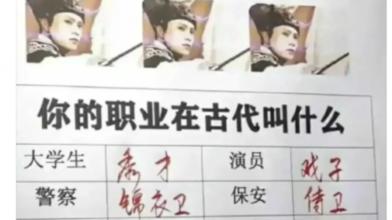 你的职业在古代叫什么
大学生 秀才 演员 戏子
警察 锦衣卫 保安 侍卫